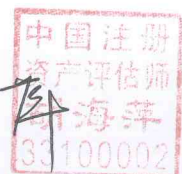 中国注册
资产评估师
海萍
3100002